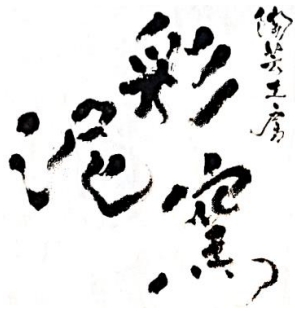 陶芸工房
彩泥窯